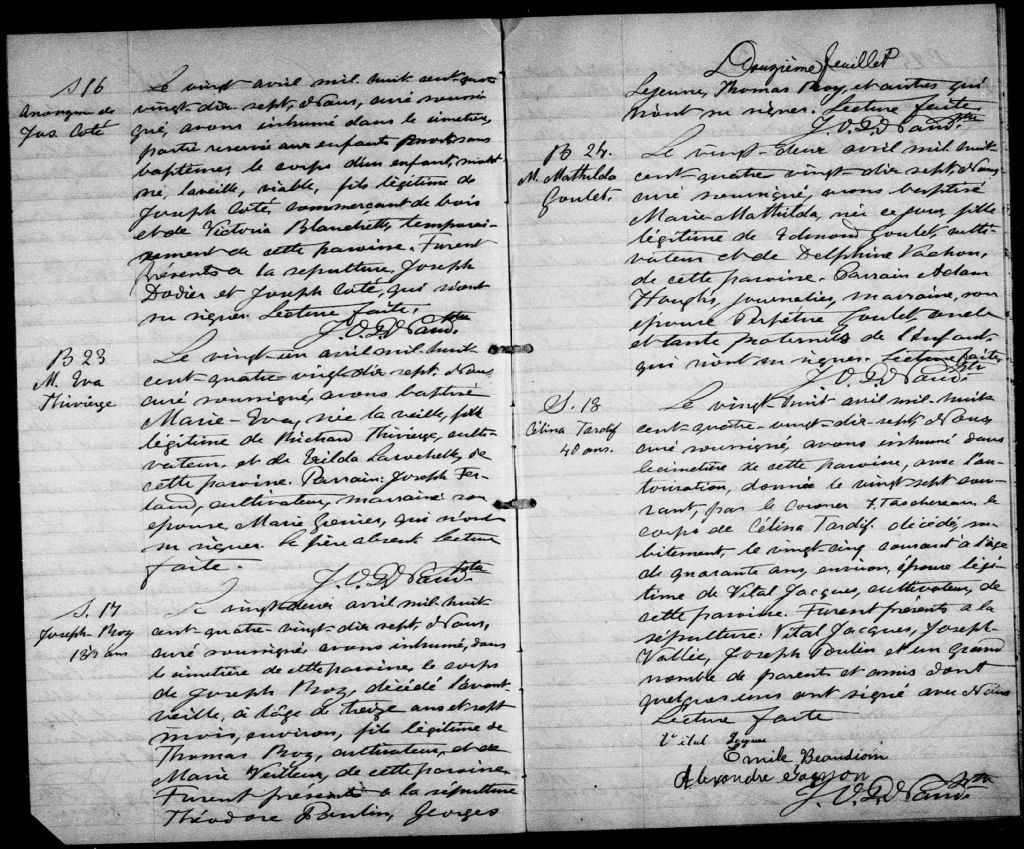 S 16
Anonyme de
Jos. Coté
Le vingt avril mil huit cent quatre
vingt-dix sept, Nous, curé soussi-
gné, avons inhumé dans le cimetière,
partie reservée aux enfants sans
baptême, le corps d'un enfant,
né, la veille, viable, fils légitime de
Joseph Coté, commerçant de bois
et de Victoria Blanchette, temporai-
rement de cette paroisse. Furent
présents à la sepulture, Joseph
Dodier et Joseph Coté, qui n'ont
su signer. Lecture faite.
Ptre
B 23
M. Eva
Thivierge
Le vingt-un avril mil-huit-
cent-quatre vingt-dix sept, Nous
curé soussigné, avons baptisé
Marie-Eva, née la veille, fille
légitime de Richard Thivierge, culti-
vateur, et de Exilda Larochelle, de
cette paroisse. Parrain: Joseph Fer-
land, cultivateur, marraine son
epouse, Marie Grenier, qui n'ont
su signer. le père absent. Lecture
faite.
Ptre
S. 17
Joseph-Roy
13½ ans
Le vingt-deux avril mil-huit-
cent-quatre-vingt-dix sept, Nous,
curé soussigné, avons inhumé, dans
le cimetière de cette paroisse, le corps
de Joseph Roy, décédé l'avant-
veille, à l'âge de treize ans et sept
mois, environ, fils légitime de
Thomas Roy, cultivateur, et de
Marie Veilleux, de cette paroisse.
Furent présents à la sépulture
Théodore Poulin, Georges
Douzième feuillet
Lejeune, Thomas Roy, et autres qui
n'ont su signer. Lecture faite
Ptre
B 24.
M. Mathilda
Goulet.
Le vingt-deux avril mil huit
cent-quatre vingt-dix sept, Nous
curé soussigné, avons baptisé
Marie-Mathilda, née ce jour, fille
légitime de Edmond Goulet, culti-
vateur et de Delphine Vachon,
de cette paroisse. Parrain Adam
Houghs, journalier, marraine, son
epouse Perpétue Goulet oncle
et tante paternels de l'Enfant,
qui n'ont su signer. Lecture faite.
Ptre
S. 18
Célina Tardif
40 ans.
Le vingt huit avril mil-huit-
cent-quatre-vingt-dix-sept, Nous,
curé soussigné, avons inhumé dans
le cimetière de cette paroisse, avec l'au-
torisation, donnée le vingt sept cou-
rant, par le Coroner F. Taschereau, le
corps de Célina Tardif, décédé, su-
bitement, le vingt-cinq courant à l'âge
de quarante ans, environ, épouse légi-
time de Vital Jacques, cultivateur, de
cette paroisse. Furent présents à la
sépulture: Vital Jacques, Joseph-
Vallée, Joseph Poulin et un grand
nombre de parents et amis dont
quelques uns ont signé avec Nous
Lecture faite
Vital Jacques
Emile Beaudoin
Alexandre Gagnon
Ptre